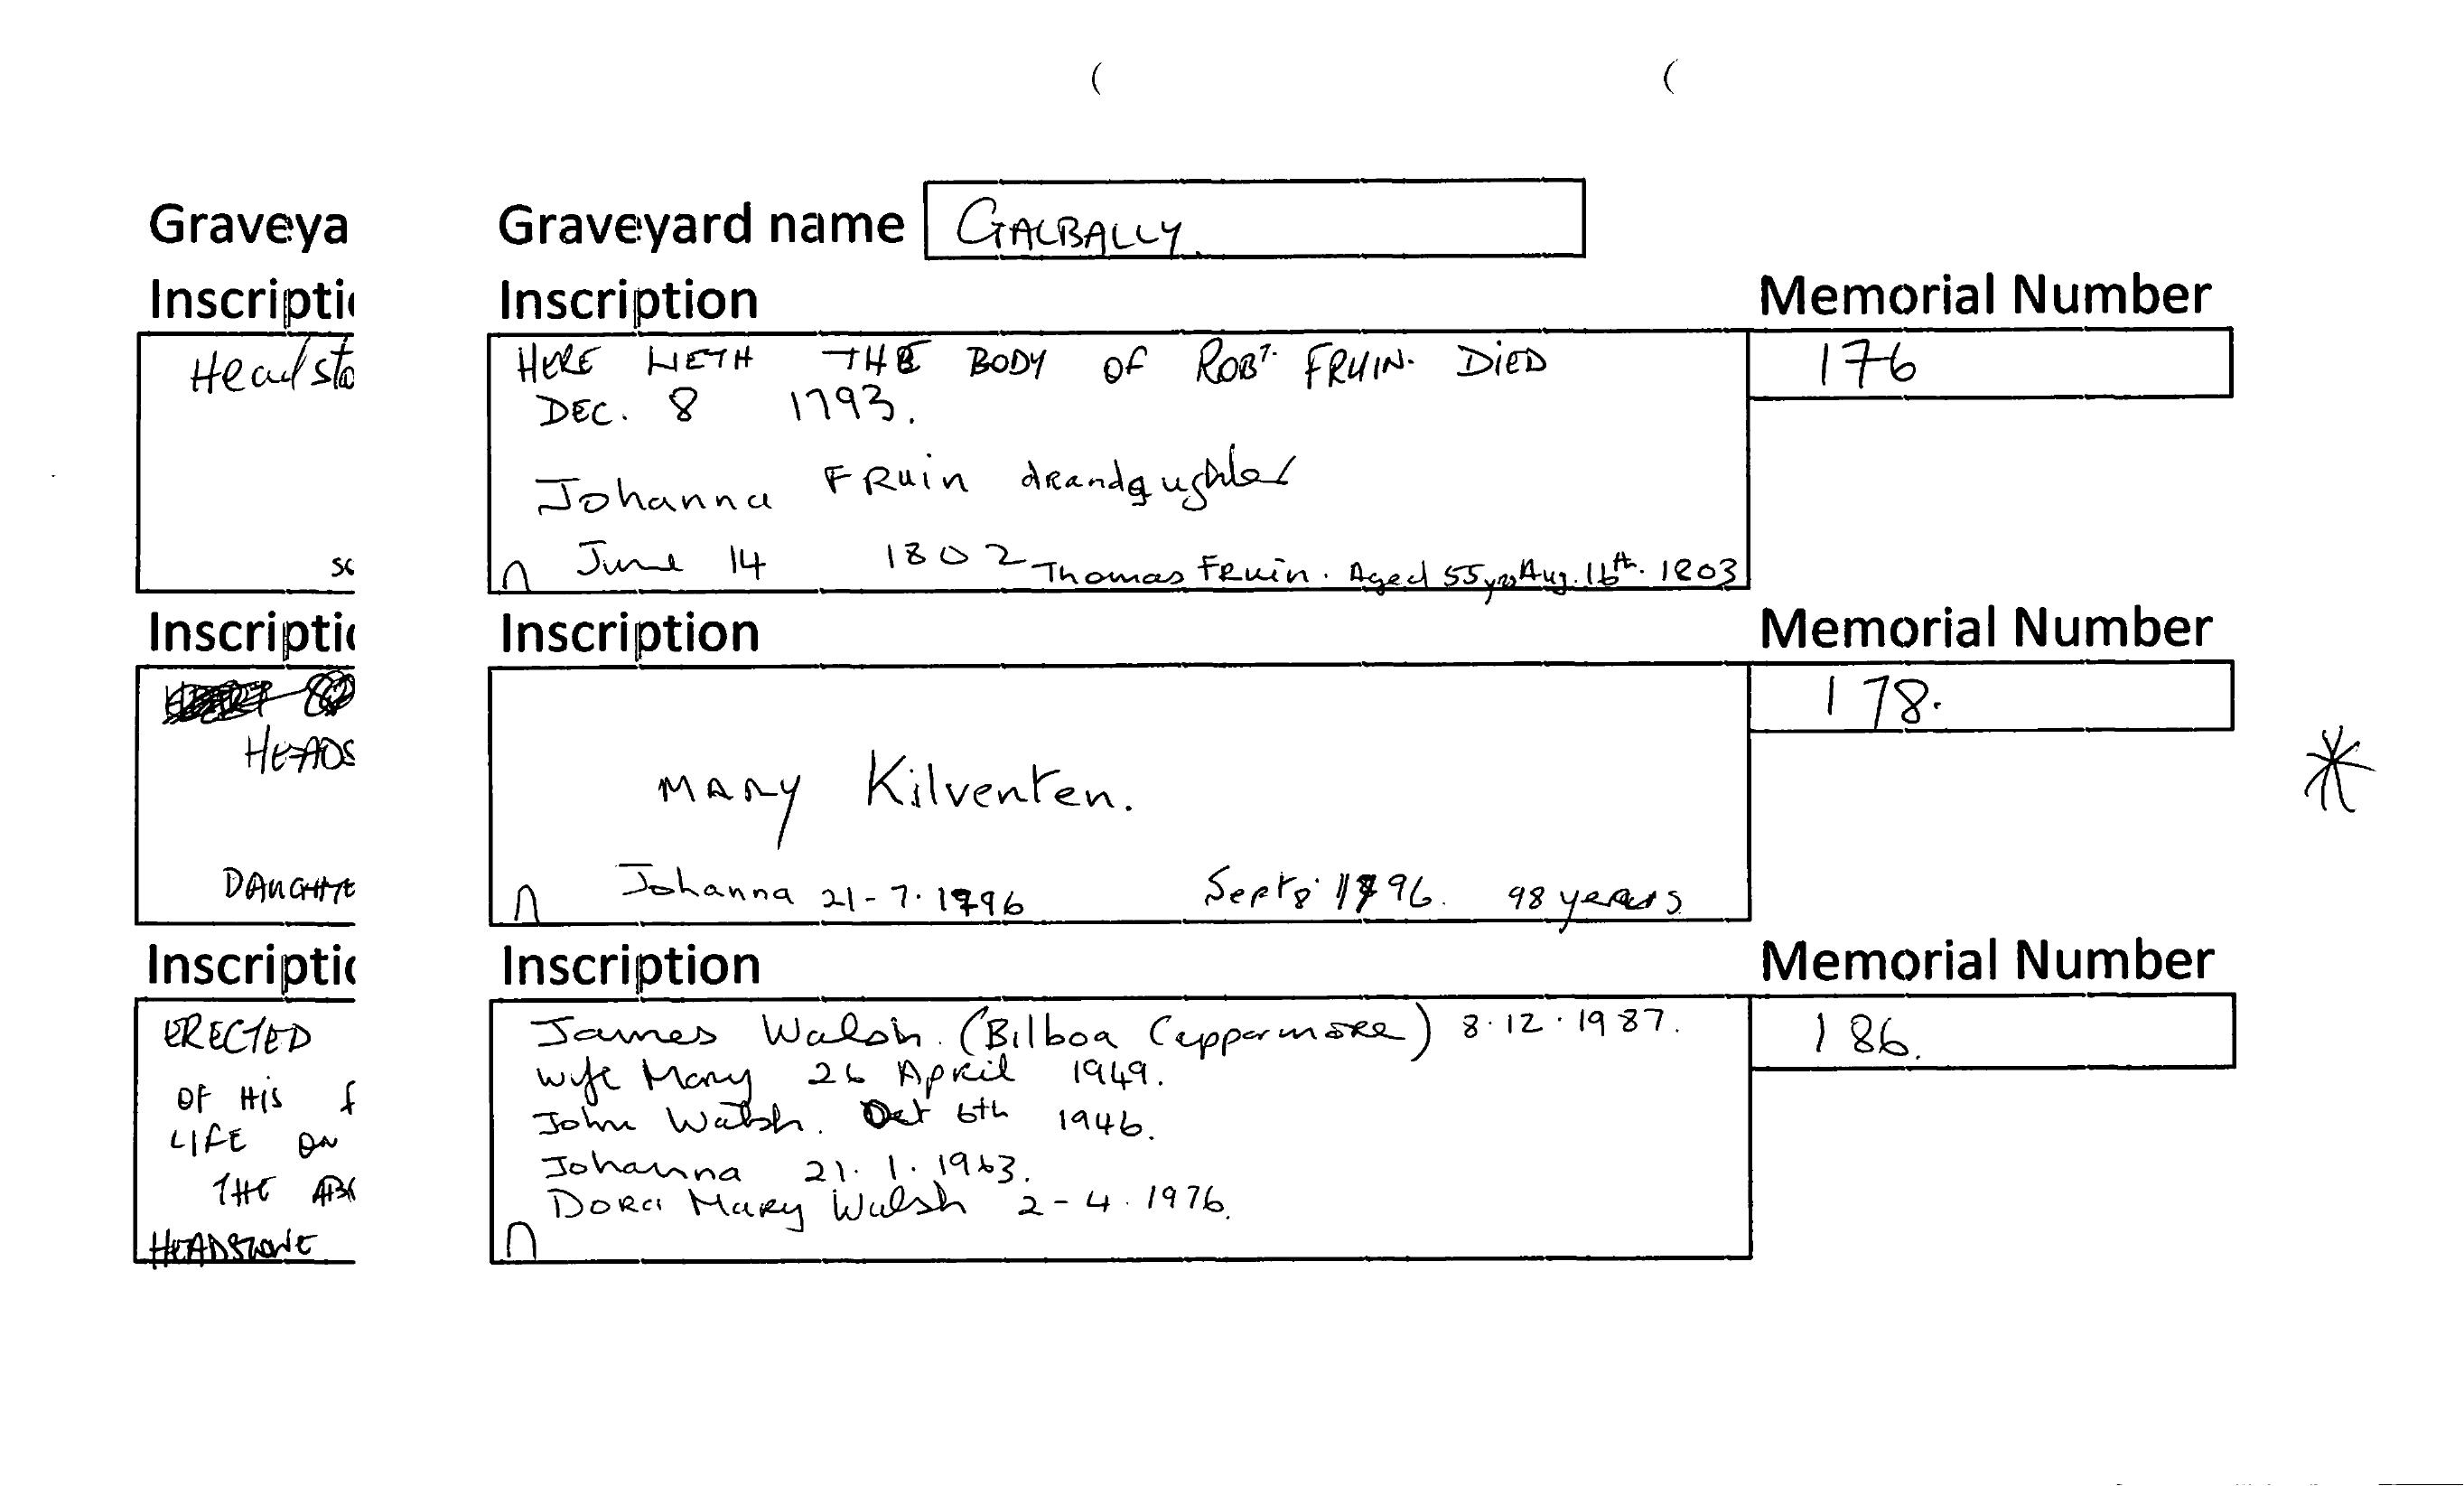 Graveya
Inscripti
Headsto
Inscripti
HEADS
DAUGHTE
Inscripti
ERECTED
OF HIS f
LIFE ON
THE AB
HEADSTONE
Graveyard name GALBALLY
Inscription Memorial Number
HERE LIETH THE BODY OF ROBT. FRUIN. DIED 176
DEC. 8 1793.
Johanna FRuin drandaughter
∩ June 14 1802 Thomas Fruin. Aged 55yrs Aug. 16th. 1803
Inscription Memorial Number
178.
MARY Kilventen. *
∩ Johanna 21-7.1796 Sept 8 1796. 98 years
Inscription Memorial Number
James Walsh. (Bilboa Cappormore) 8.12.1987. 186.
wife Mary 26 April 1949.
John Walsh. Oct 6th 1946.
Johanna 21.1.1963.
Dora Mary Walsh 2-4.1976.
∩